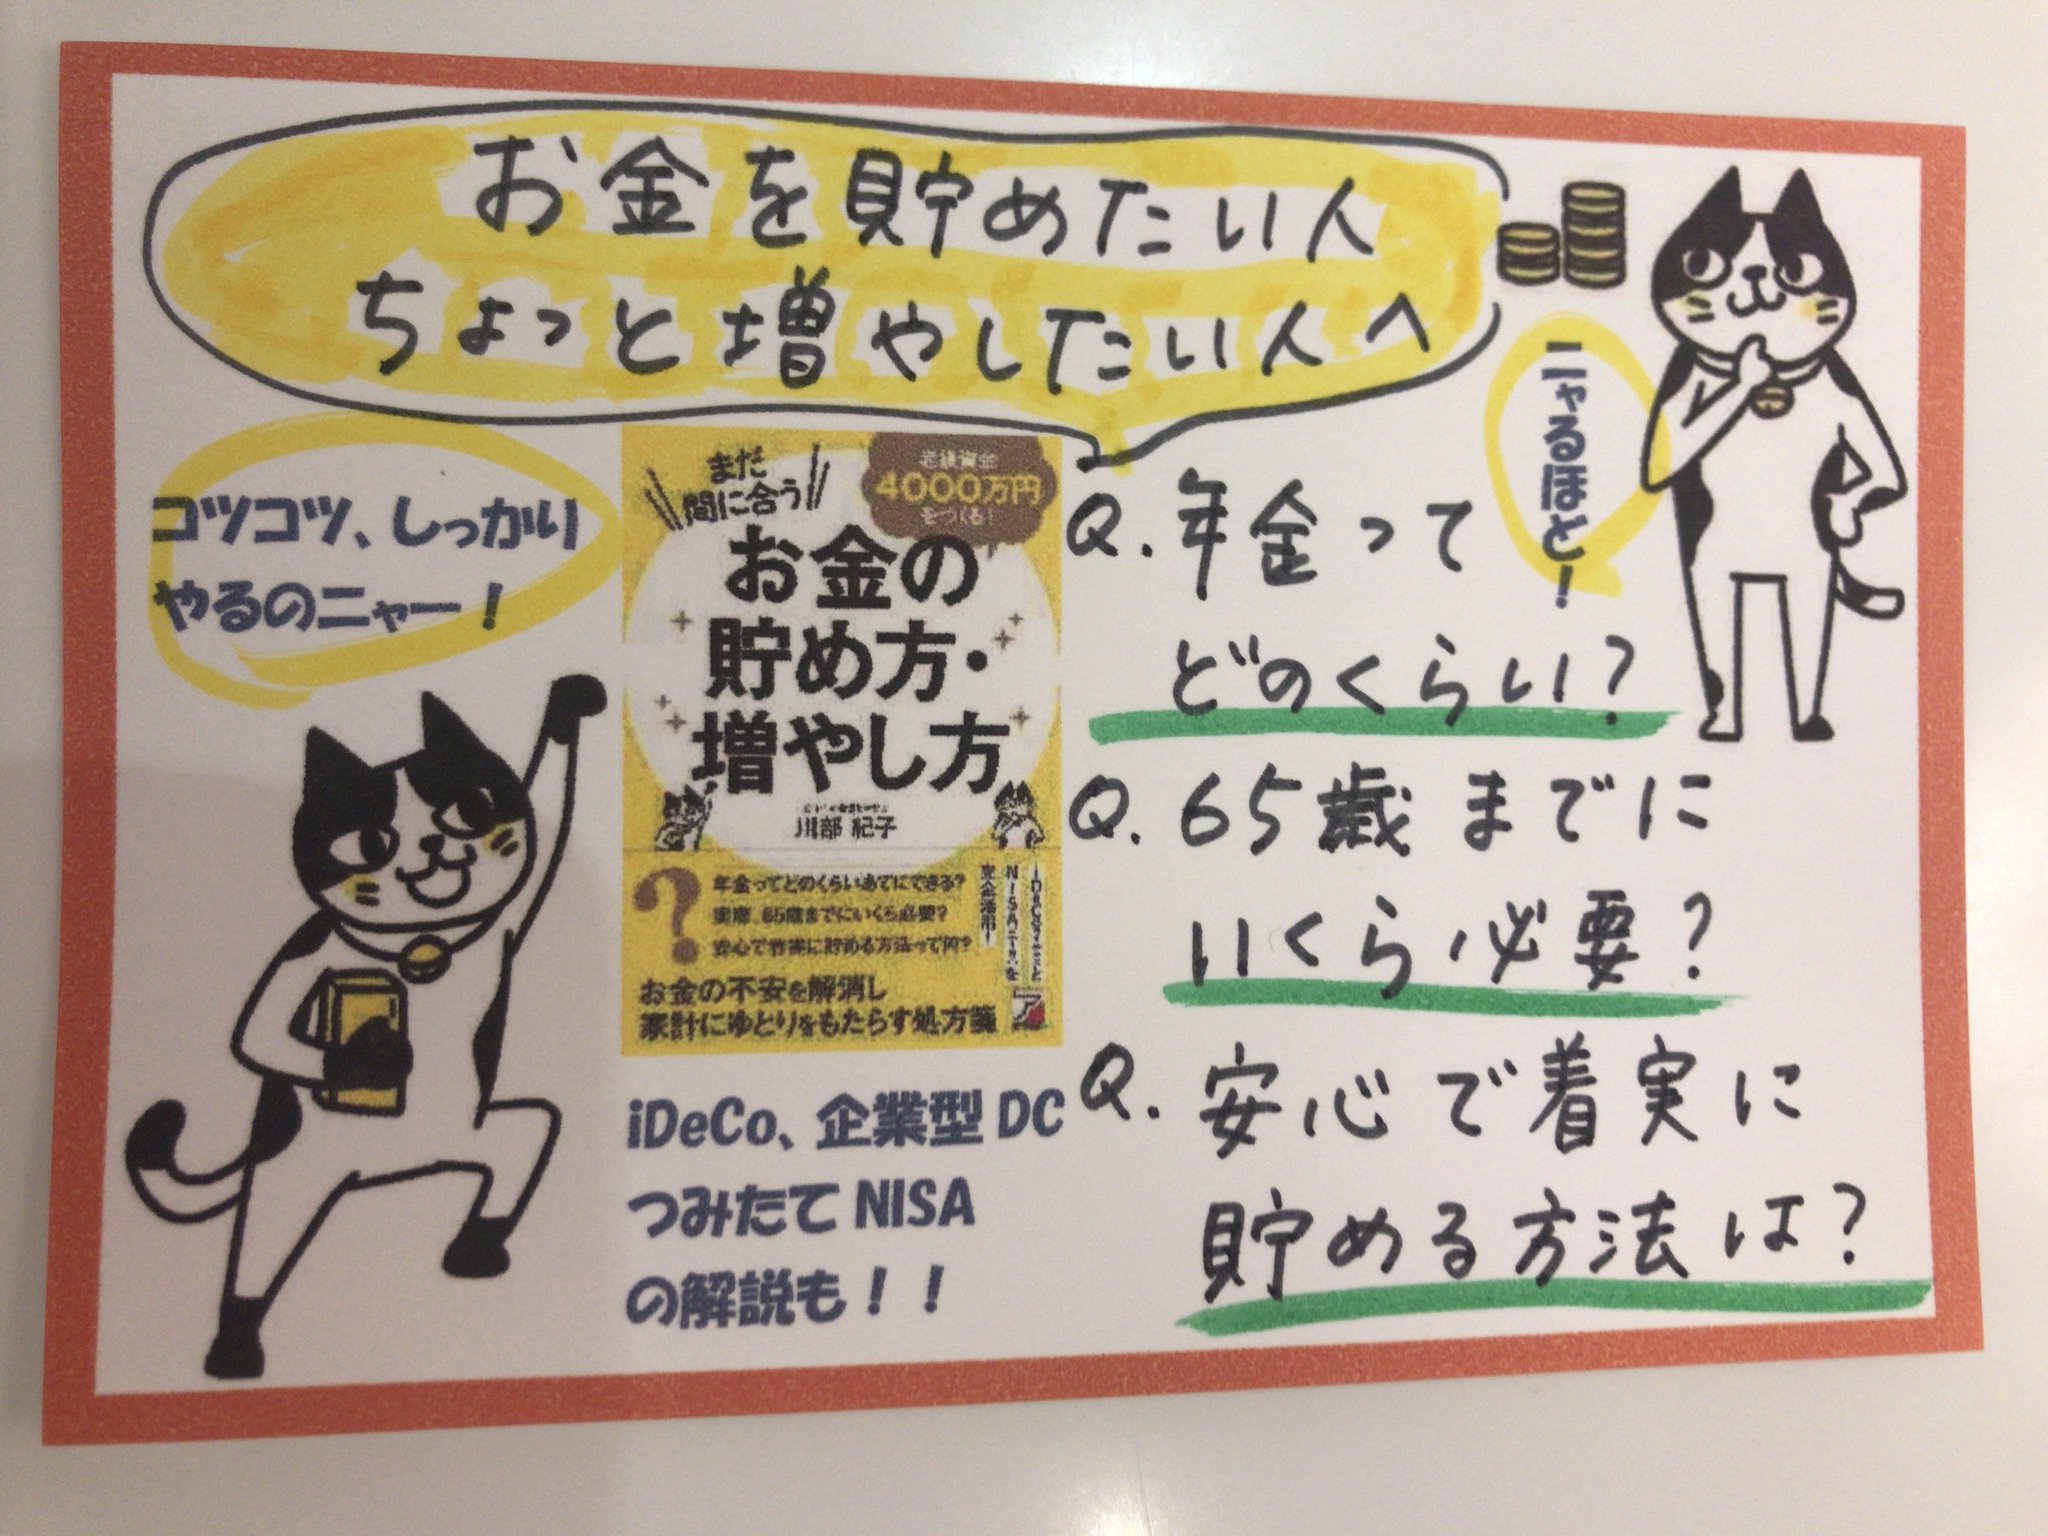 お金を貯めたい人
ちょっと増やしたい人へ
ニャるほど！
コツコツ、しっかり
やるのニャー！
まだ
間に合う
老後資金
4000万円
をつくる！
お金の
貯め方・
増やし方
川部 紀子
年金ってどのくらいあてにできる？
実際、65歳までにいくら必要？
安心で着実に貯める方法って何？
お金の不安を解消し
家計にゆとりをもたらす処方箋
ア
iDeCo、企業型DC
つみたてNISA
の解説も！！
Q. 年金って
どのくらい？
Q. 65歳までに
いくら必要？
Q. 安心で着実に
貯める方法は？